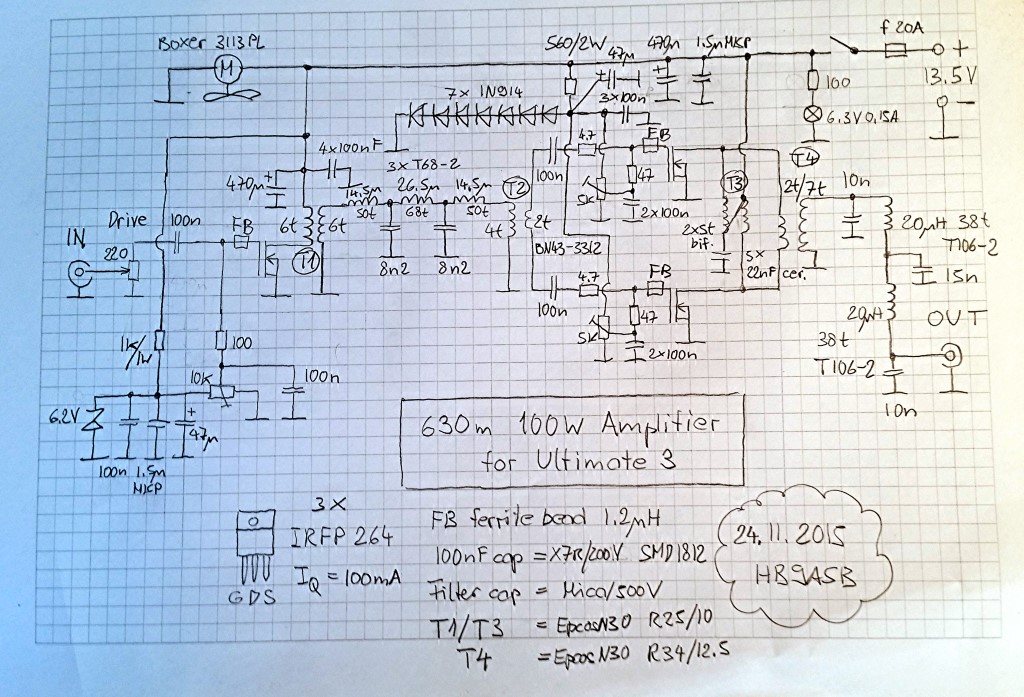 Boxer 3113PL
M
560/2W
47µ
470µ
1.5µ MKP
f 20A
+
13.5V
−
100
6.3V 0.15A
7x 1N914
3x100n
4x100nF
3x T68-2
470µ
+
14.5µ
26.5µ
14.5µ
50t
68t
50t
8n2
8n2
6t
6t
T1
T2
4t
2t
BN43-3312
100n
4.7
FB
47
5K
2x100n
T3
2x5t
bif.
5x
22nF cer.
T4
2t/7t
10n
20µH 38t
T106-2
15n
20µH
38t
T106-2
OUT
10n
Drive
IN
220
100n
FB
100n
4.7
FB
47
5K
2x100n
1K/1W
100
10K
100n
6.2V
+
47µ
100n 1.5µ
MKP
630m 100W Amplifier
for Ultimate 3
3x
IRFP 264
IQ = 100mA
GDS
FB ferrite bead 1.2µH
100nF cap = X7R/200V SMD1812
Filter cap = Mica/500V
T1/T3 = Epcos N30 R25/10
T4 = Epcos N30 R34/12.5
24.11.2015
HB9ASB